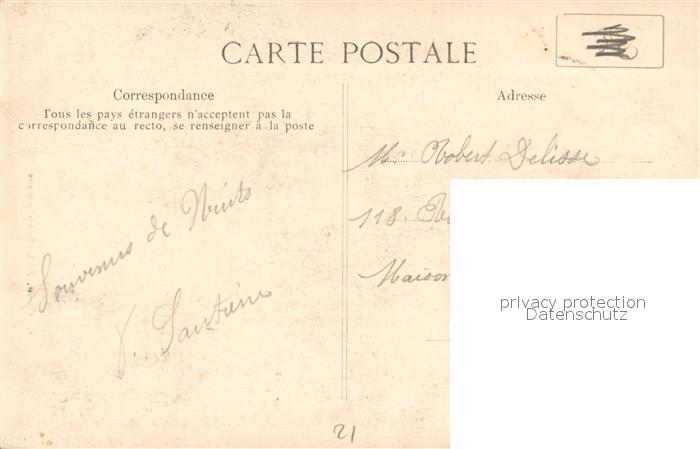 CARTE POSTALE
Correspondance
Tous les pays étrangers n'acceptent pas la
correspondance au recto, se renseigner à la poste
Souvenirs de Nuits
Adresse
Mr Robert Delisse
118
Maison
privacy protection
Datenschutz
21